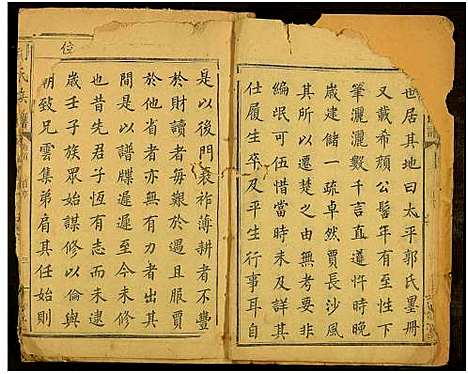 世居其地曰太平郭氏墨冊
又載希顏公髫年有至性下
筆灑灑數千言直道忤時晚
歲建儲一疏卓然賈長沙風
其所以遷楚之由無考要非
編氓可伍惜當時未及詳其
仕履生卒及平生行事耳自
是以後門衰祚薄耕者不豐
於財讀者每艱於遇且服賈
於他省者亦或有人焉此其
間是以譜牒遲遲至今未修
也昔先君子恆有志而未逮
歲壬子族眾始謀修以倫與
明致兄雲集弟肩其任始則